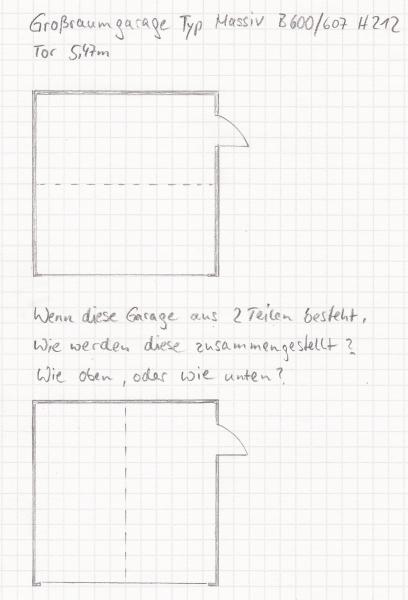 Großraumgarage Typ Massiv B600/607 H212
Tor 5,47m
Wenn diese Garage aus 2 Teilen besteht,
Wie werden diese zusammengestellt?
Wie oben, oder wie unten?